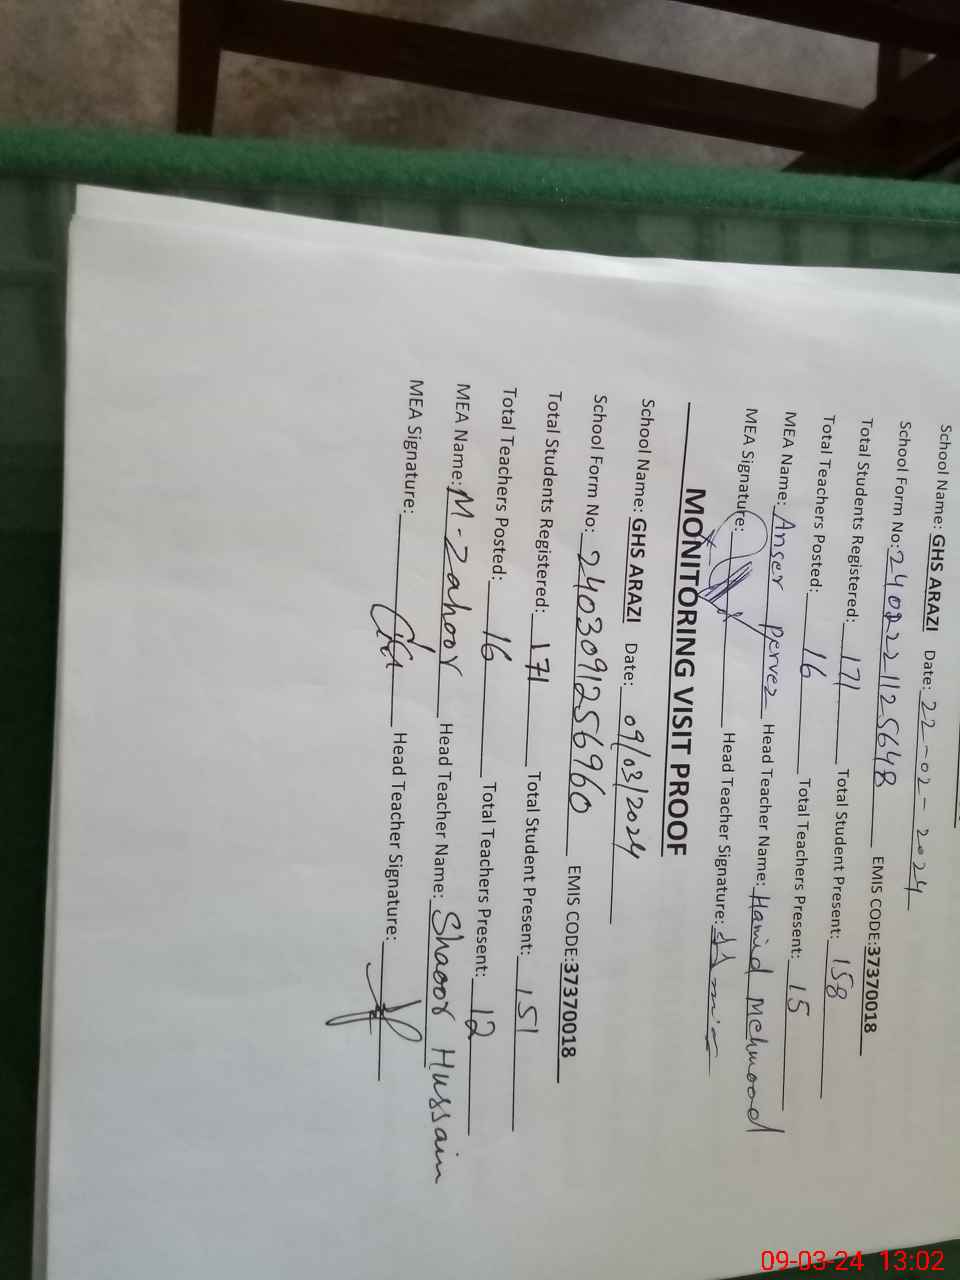 School Name: GHS ARAZI Date: 22-02-2024
School Form No: 2402221125648 EMIS CODE:37370018
Total Students Registered: 171 Total Student Present: 158
Total Teachers Posted: 16 Total Teachers Present: 15
MEA Name: Anser Pervez Head Teacher Name: Hamid Mehmood
MEA Signature: Head Teacher Signature:
MONITORING VISIT PROOF
School Name: GHS ARAZI Date: 09/03/2024
School Form No: 2403091256960 EMIS CODE:37370018
Total Students Registered: 171 Total Student Present: 151
Total Teachers Posted: 16 Total Teachers Present: 12
MEA Name: M-Zahoor Head Teacher Name: Shaoor Hussain
MEA Signature: Head Teacher Signature:
09-03-24 13:02